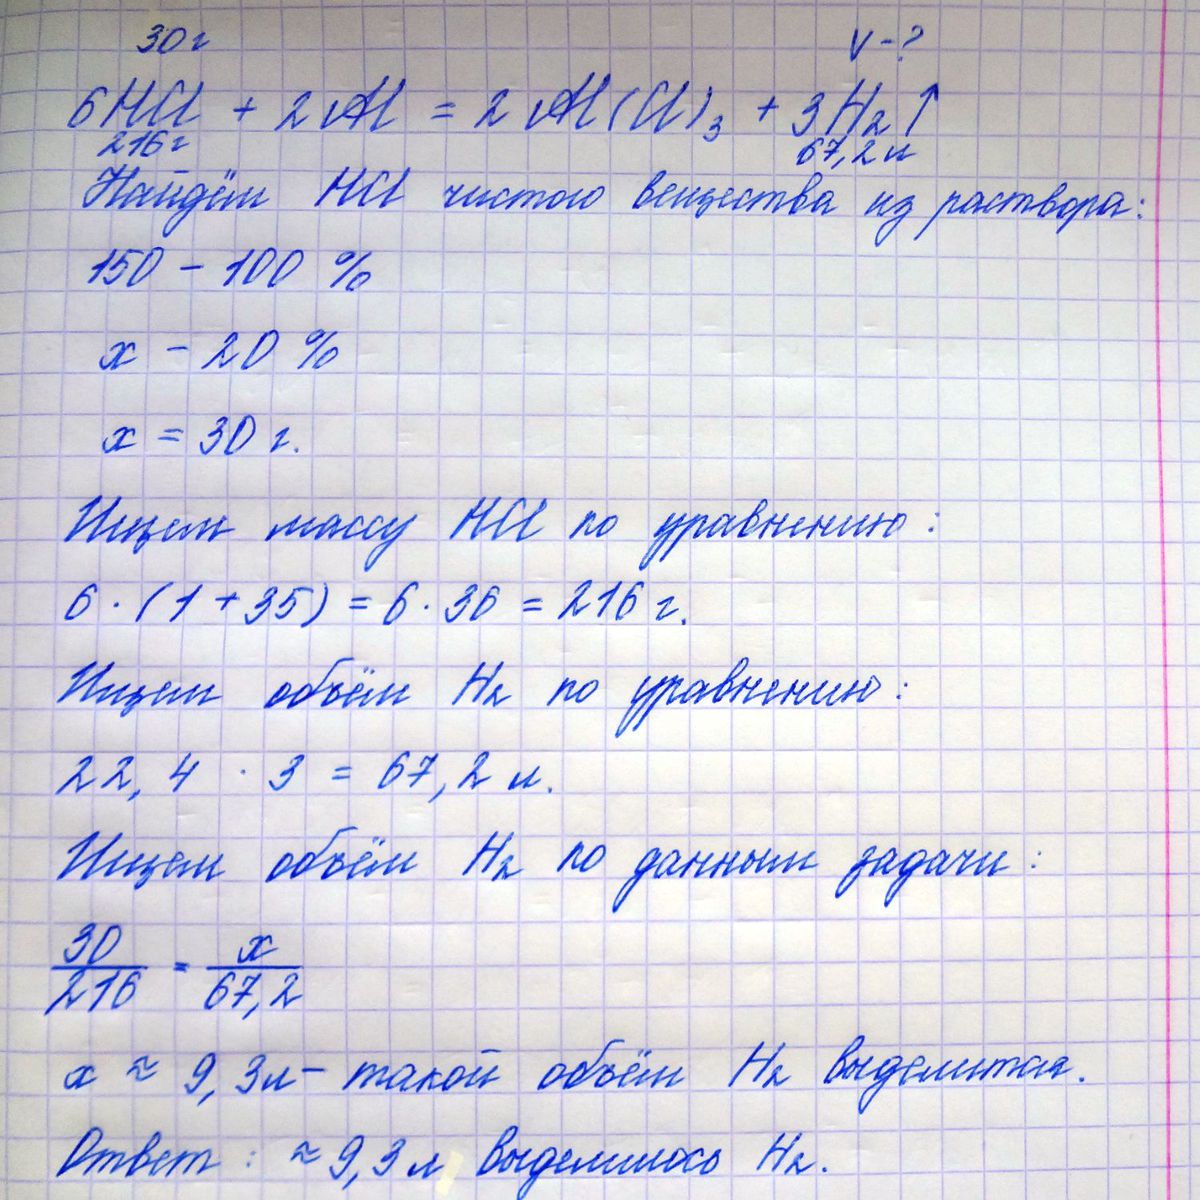 30 г V - ?
6HCl + 2Al = 2Al(Cl)₃ + 3H₂↑
216 г 67,2 л
Найдём HCl чистого вещества из раствора:
150 - 100 %
x - 20 %
x = 30 г.
Ищем массу HCl по уравнению:
6 · (1 + 35) = 6 · 36 = 216 г.
Ищем объём H₂ по уравнению:
22,4 · 3 = 67,2 л.
Ищем объём H₂ по данным задачи:
30/216 = x/67,2
x ≈ 9,3л - такой объём H₂ выделится.
Ответ: ≈ 9,3 л выделилось H₂.